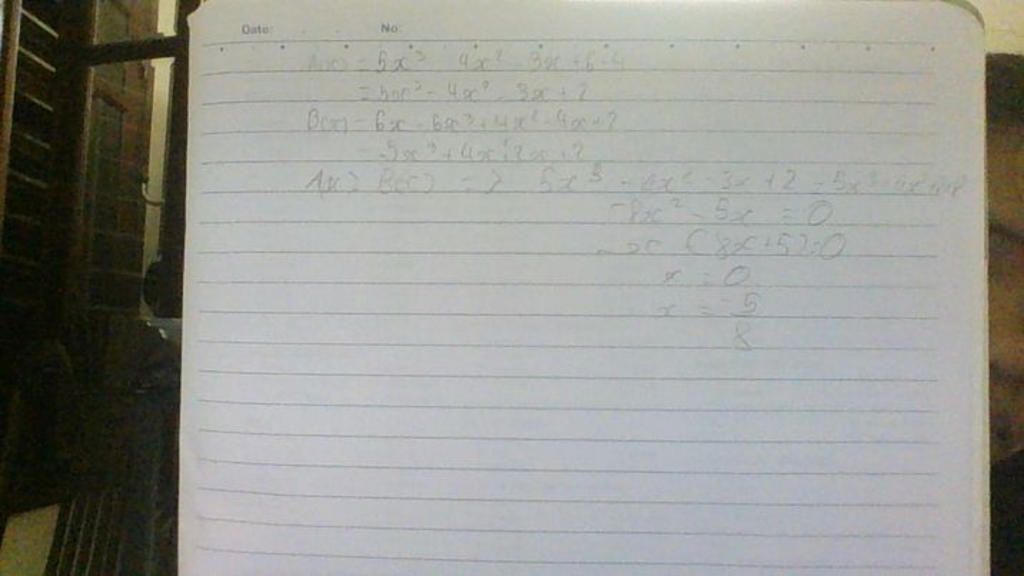 Date: No:
A(x) = 5x³ 4x² - 3x + 6 - 4
= 5x³ - 4x² - 3x + 2
B(x) = 6x - 5x³ + 4x² - 4x + 2
5x³ + 4x² 2x + 2
A(x) B(x) => 5x³ - 4x² - 3x + 2 = 5x³
-8x² - 5x = 0
-x (8x+5)=0
x = 0
x = -5
8